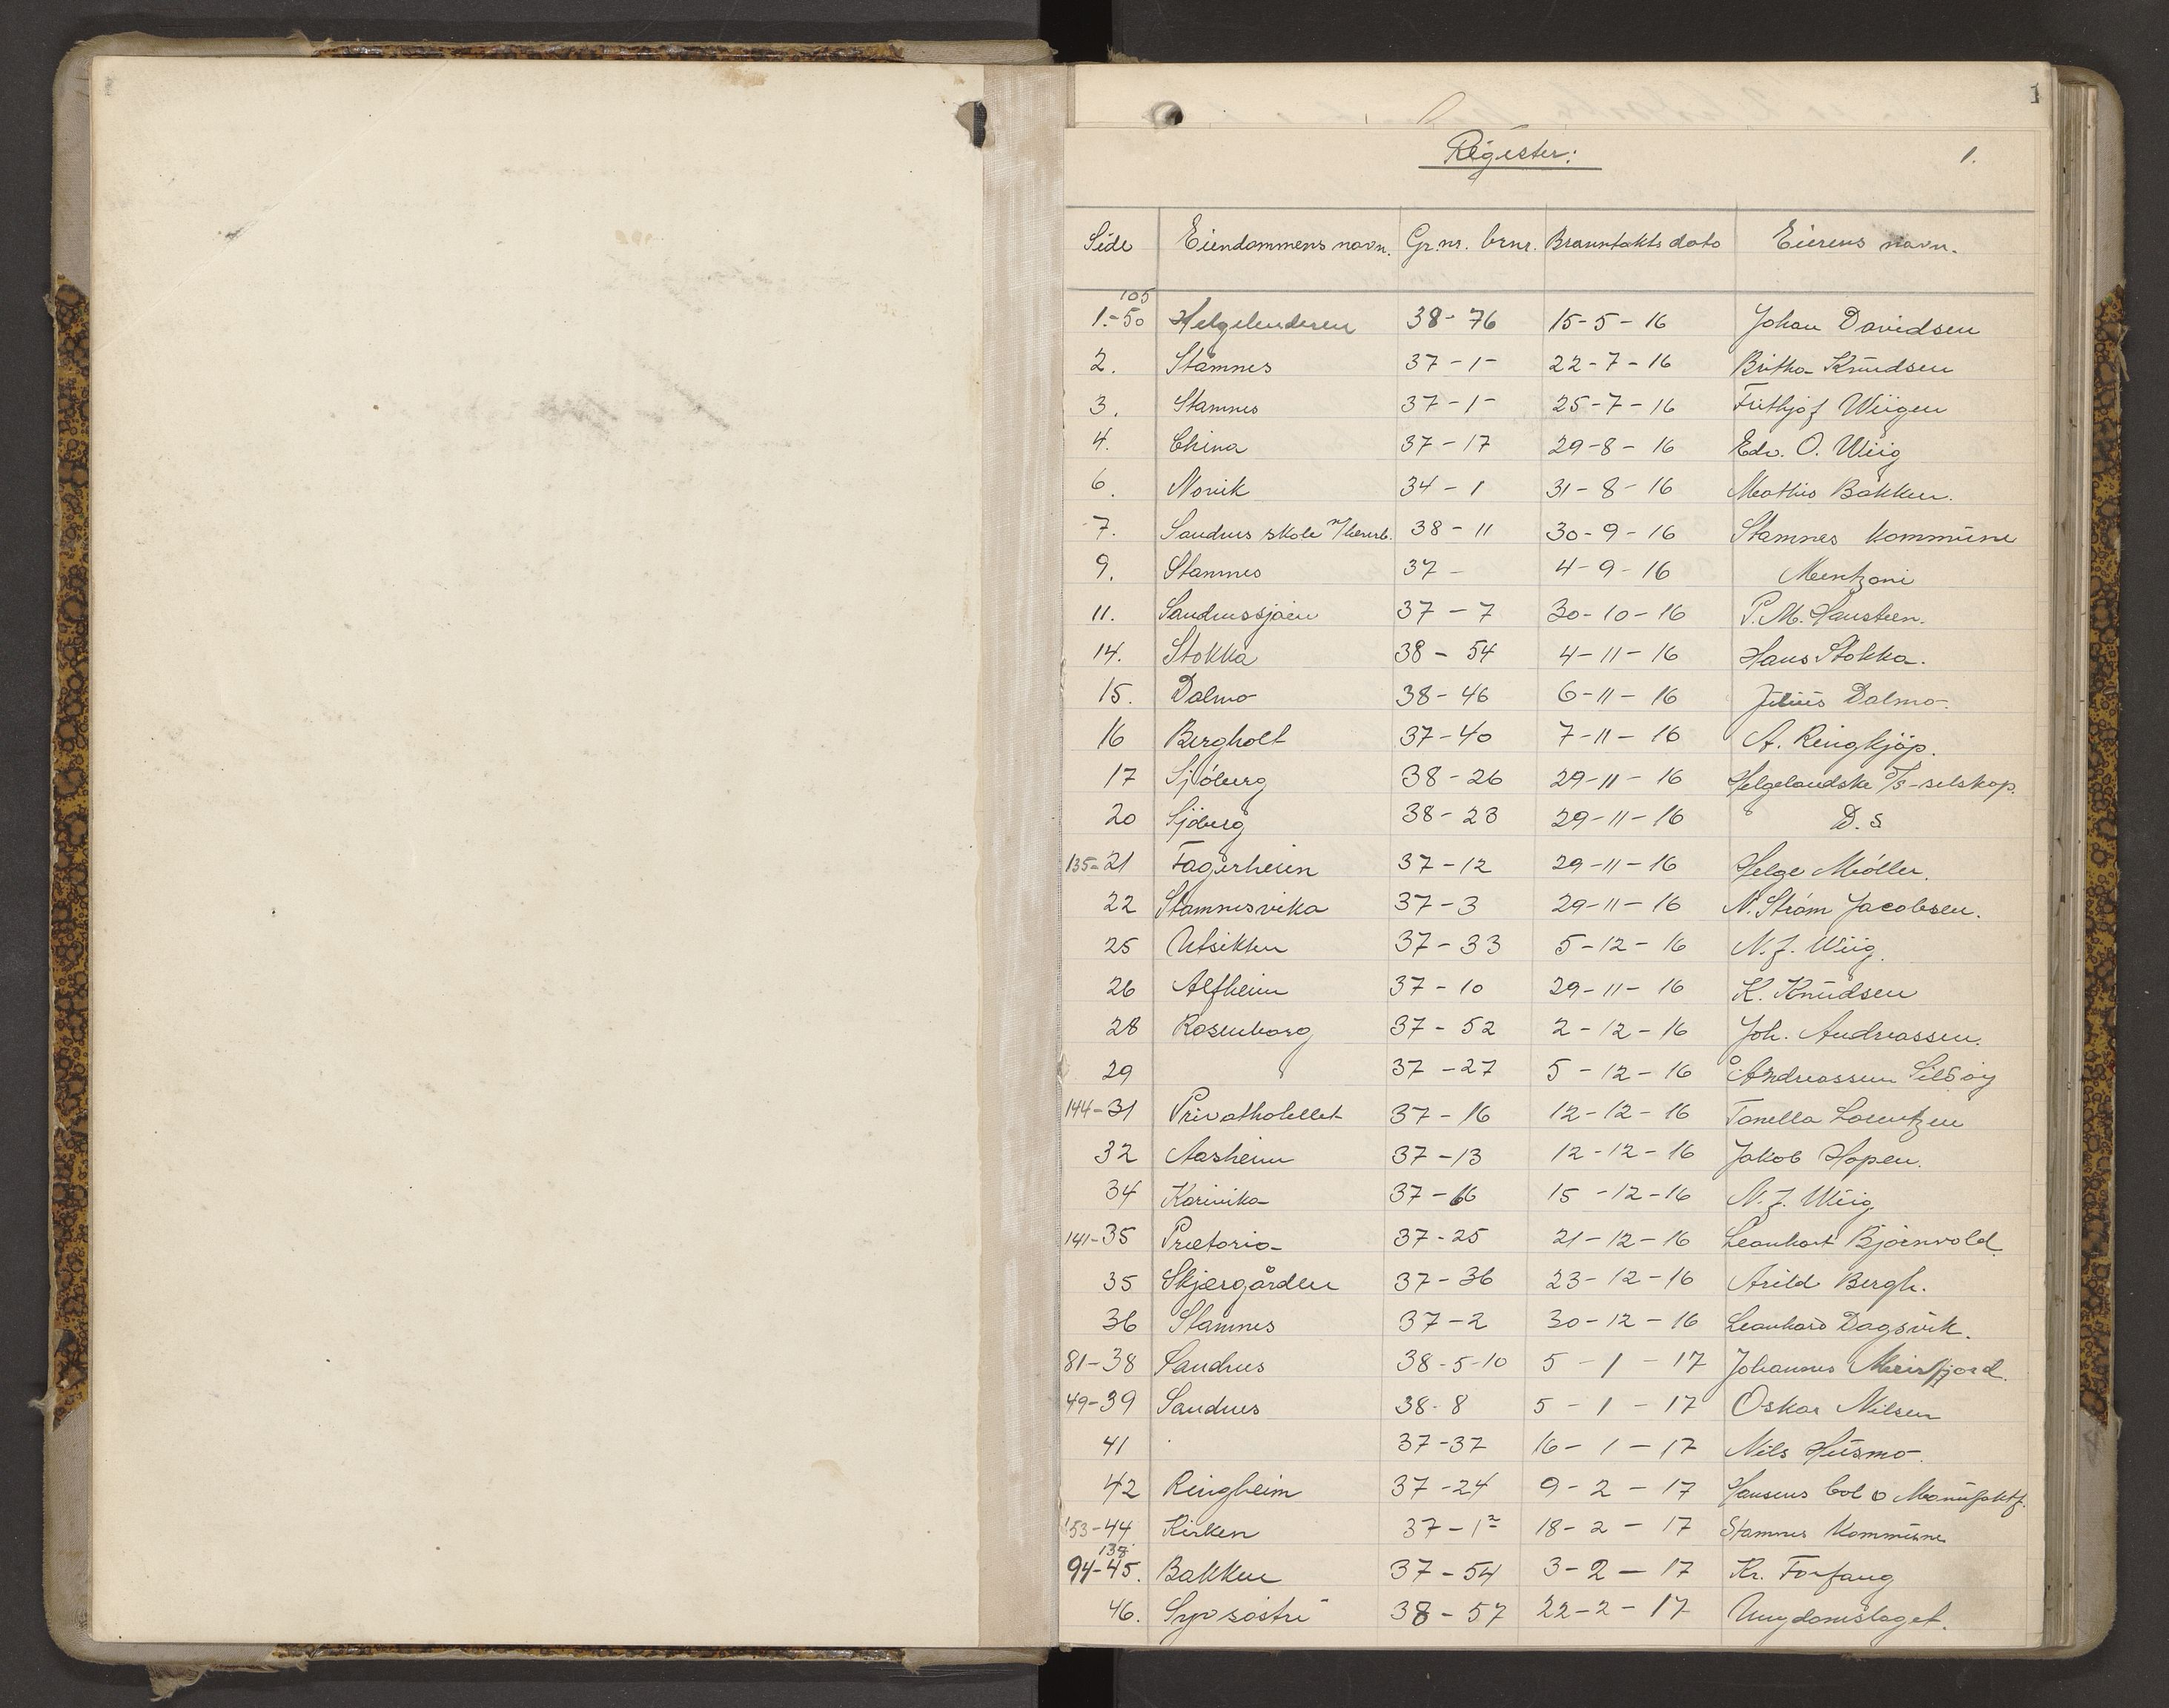 1
Register:
1.
Side Eiendommens navn. Gr.nr. brnr. Branntakts dato Eierens navn.
105
1.-50 Helgelenderen 38-76 15-5-16 Johan Davidsen
2. Stamnes 37-1- 22-7-16 Britha Knudsen
3. Stamnes 37-1- 25-7-16 Frithjof Wiigen
4. China 37-17 29-8-16 Edv. O. Wiig
6. Norvik 34-1 31-8-16 Mathis Bakken.
7. Sandnes skole 38-11 30-9-16 Stamnes kommune
9. Stamnes 37- 4-9-16 Mentzoni
11. Sandnessjøen 37-7 30-10-16 P. M. Hansteen.
14. Stokka 38-54 4-11-16 Hans Stokka.
15. Dalmo 38-46 6-11-16 Julius Dalmo.
16 Bergholt 37-40 7-11-16 A. Ringkjøp.
17 Sjøberg 38-26 29-11-16 Helgelandske D/s-selskap.
20 Sjöberg 38-23 29-11-16 D. s
135-21 Fagerheim 37-12 29-11-16 Helge Møller.
22 Stamnesvika 37-3 29-11-16 N. Strøm Jacobsen.
25 Utsikten 37-33 5-12-16 N. J. Wiig.
26 Alfheim 37-10 29-11-16 K. Knudsen
28 Rosenborg 37-52 2-12-16 Joh. Andreassen.
29 37-27 5-12-16 Andreassen Sildøy
144-31 Privathotellet 37-16 12-12-16 Tonella Lorentzen
32 Aasheim 37-13 12-12-16 Jakob Hopen.
34 Karivika 37-66 15-12-16 N. J. Wiig
141-35 Prætoria 37-25 21-12-16 Leonhart Bjørnvold.
35 Skjærgården 37-36 23-12-16 Arild Bergh.
36 Stamnes 37-2 30-12-16 Leonhard Dagsvik.
81-38 Sandnes 38-5-10 5-1-17 Johannes Meisfjord.
49-39 Sandnes 38-8 5-1-17 Oskar Nilsen
41 37-37 16-1-17 Nils Husmo.
42 Ringheim 37-24 9-2-17 Hansens Col o Manufaktf.
153-44 Kirken 37-1² 18-2-17 Stamnes Kommune
138
94-45. Bakken 37-54 3-2-17 Kr. Forfang
46. Syv søstre 38-57 22-2-17 Ungdomslaget.